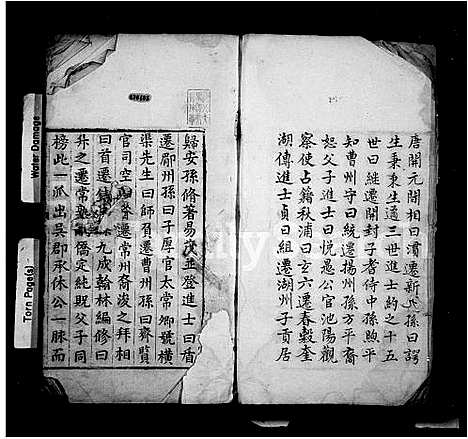 唐開元閒相曰濆遷新氏孫曰諤
生秉秉生適三世進士約之十五
世曰繼遷開封子耆侍中孫煦平
知曹州守曰統遷揚州孫方平裔
恕父子進士曰悅愚公官池陽觀
察使占籍秋浦曰玄六遷春穀奎
湖傳進士貞曰組遷湖州子貢居
歸安孫脩者易茂並登進士曰㡒
遷郿州孫曰子厚官太常卿號橫
渠先生曰師質遷曹州孫曰齊賢
官司空 齊遷常州裔浚之拜相
曰首遷 九成翰林編修曰
升之遷常 僑定純熙父子同
榜此一派出吳郡承休公一脉而
Water Damage
Torn Page(s)